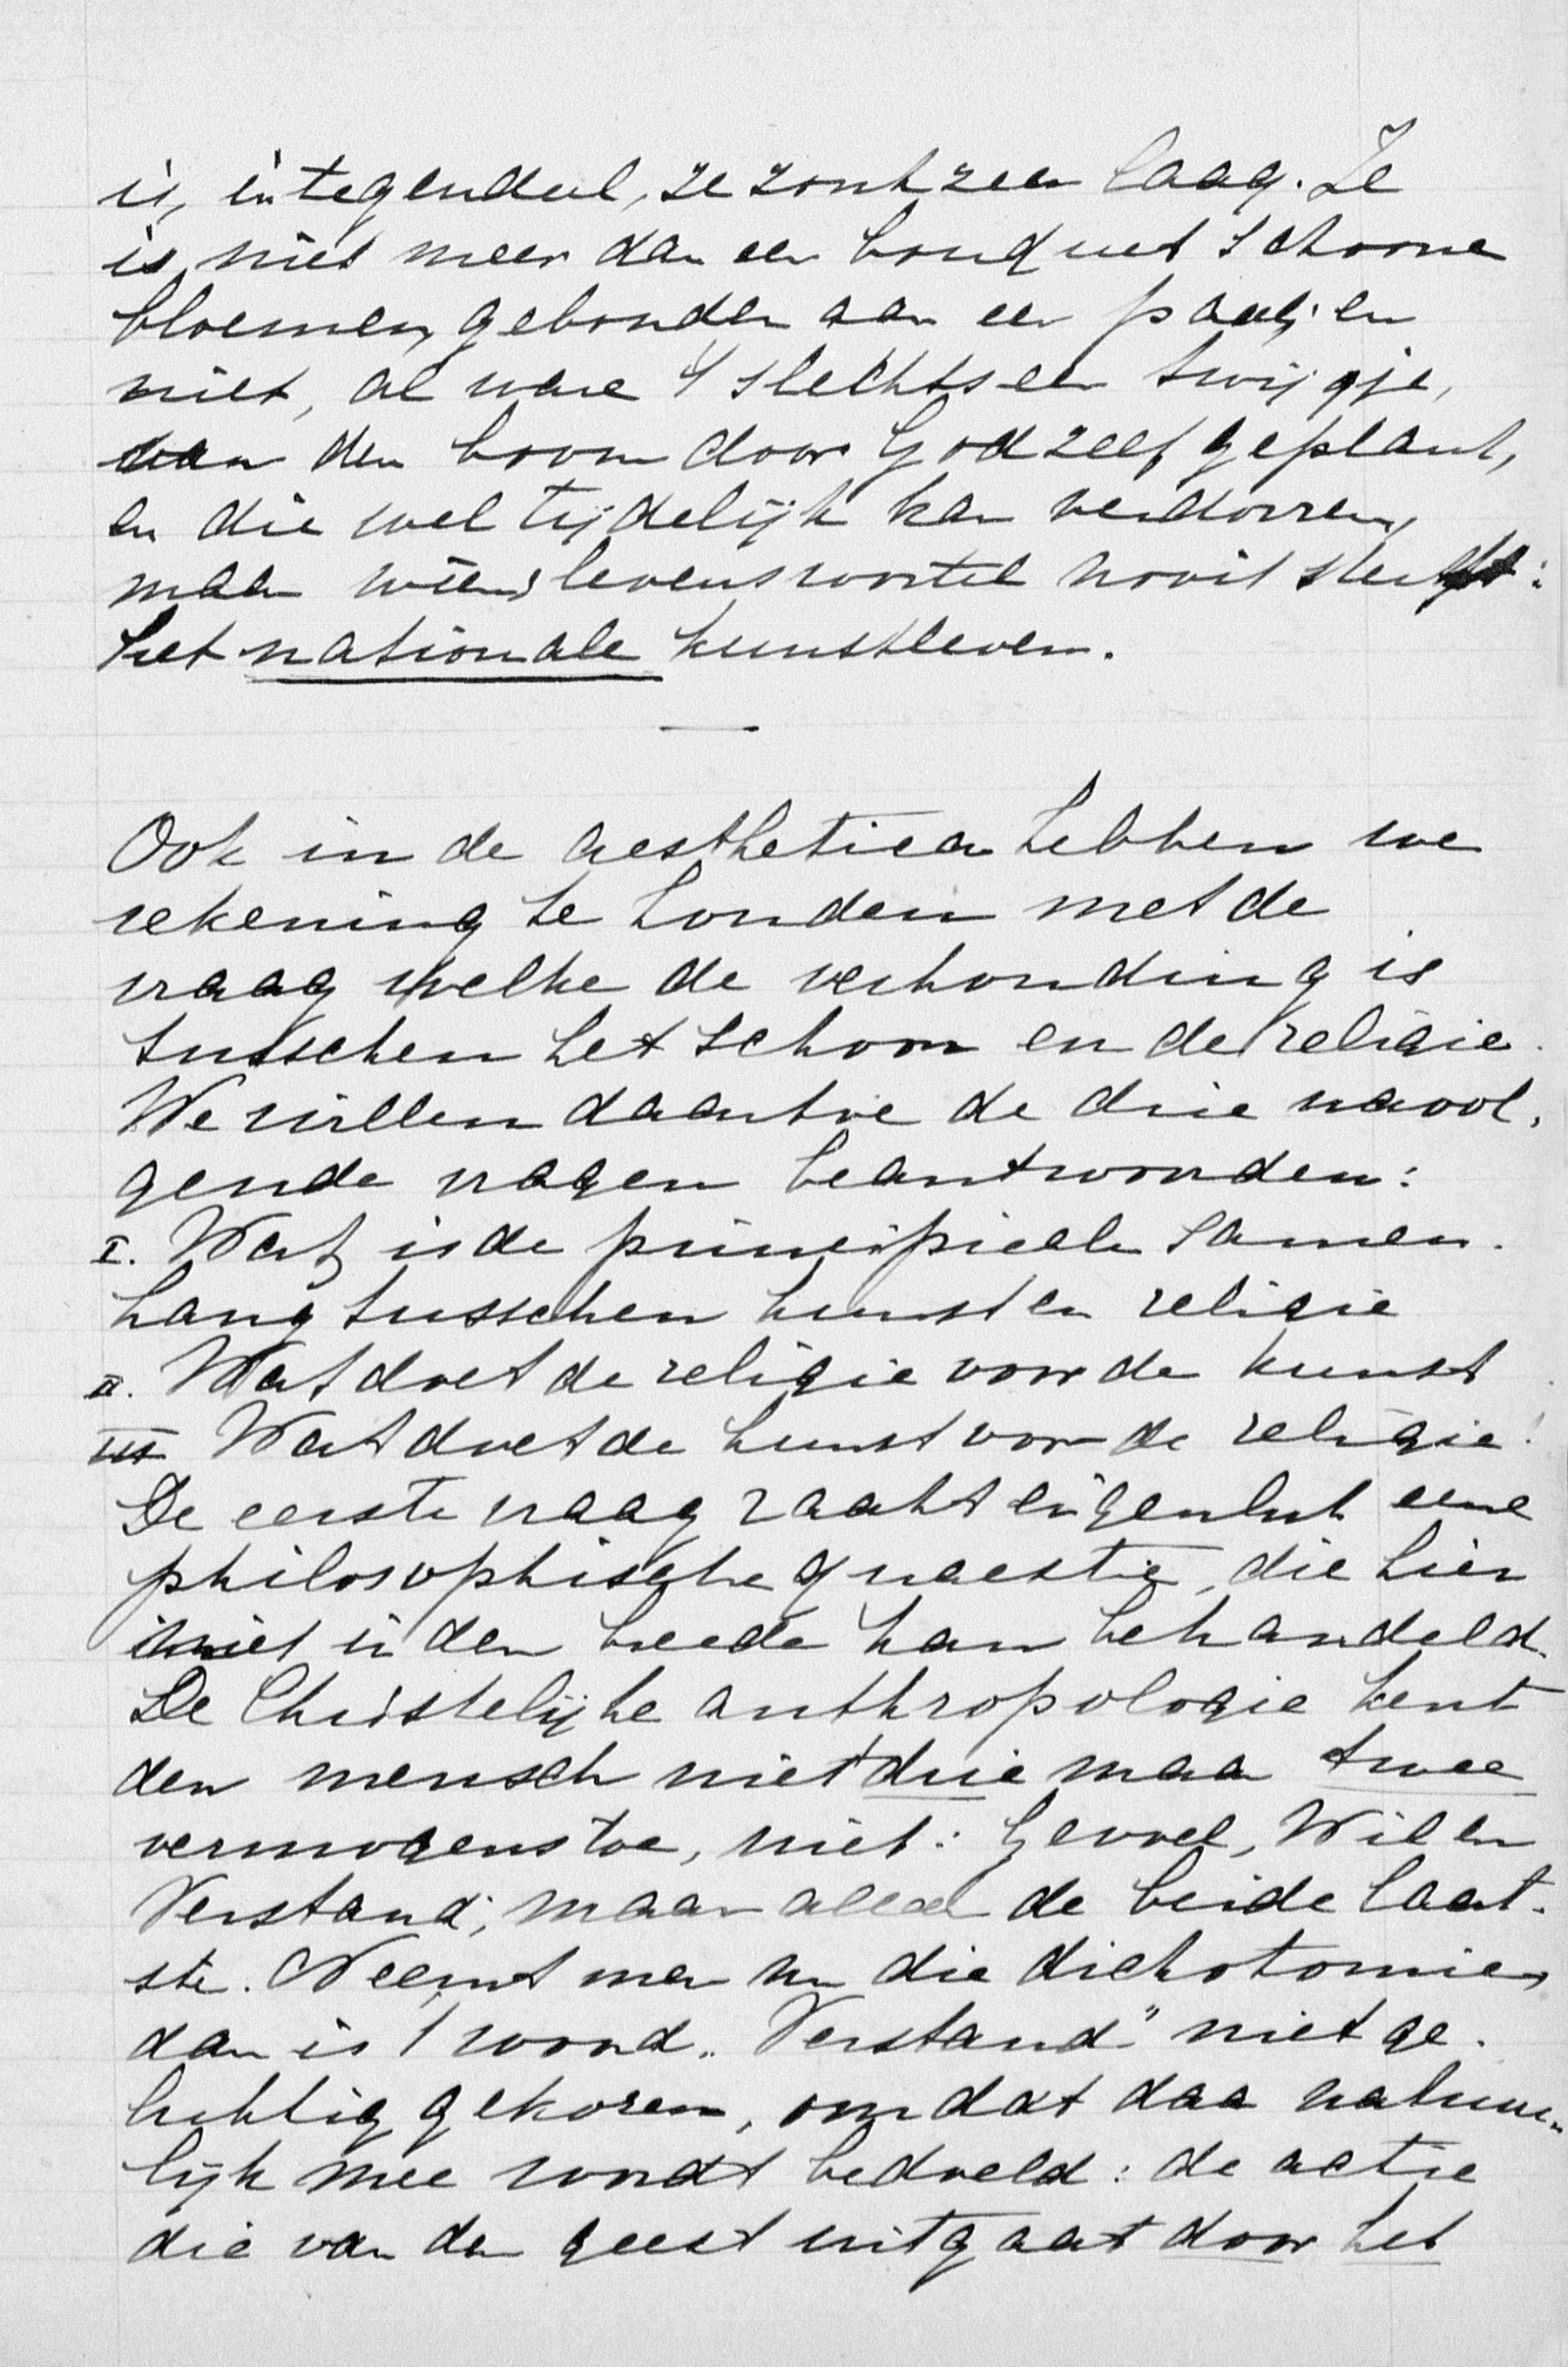 is, integendeel, ze zonk zeer laag. Ze
is niet meer dan een bouquet schoone
bloemen, gebonden aan een paal; en
niet, al ware 't slechts een twijgje,
van den boom door God zelf geplant,
en die wel tijdelijk kan verdorren,
maar wiens levenswortel nooit sterft:
het nationale kunstleven.
Ook in de aesthetica hebben we
rekening te houden met de
vraag welke de verhouding is
tusschen het schoon en de religie.
We willen daartoe de drie navol-
gende vragen beantwoorden:
I. Wat is de principieele samen-
hang tusschen kunst en religie
II. Wat doet de religie voor de kunst
III Wat doet de kunst voor de religie?
De eerste vraag raakt eigenlijk eene
philosophische quaestie, die hier
niet in den breede kan behandeld.
De Christelijke anthropologie kent
den mensch niet drie maar twee
vermogens toe, niet: Gevoel, Wil en
Verstand; maar alleen de beide laat-
ste. Neemt men nu die dichotomie,
dan is 't woord „Verstand" niet ge-
lukkig gekozen, omdat daar natuur-
lijk mee wordt bedoeld: de actie
die van den geest uitgaat door het